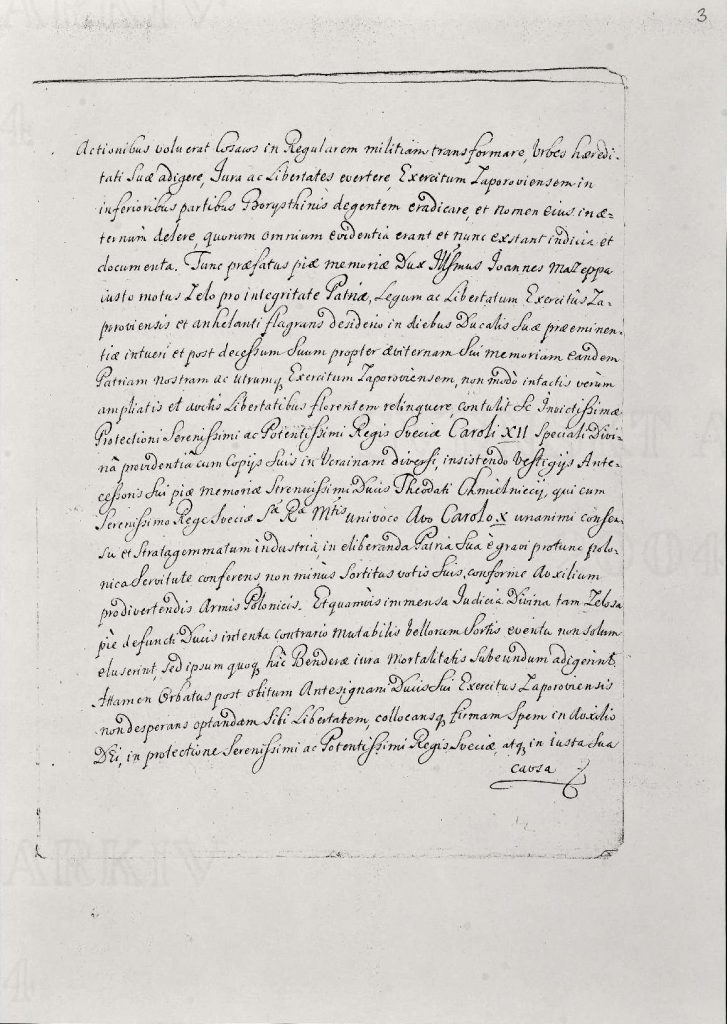 3
Actionibus voluerat Cosacos in Regularem militiam transformare, Vrbes hæredi-
tati Suæ adigere, Iura ac Libertates evertere, Exercitum Zaporoviensem in
inferioribus partibus Borysthinis degentem eradicare, et nomen eius in æ-
ternum delere, quorum omnium evidentia erant et nunc exstant indicia et
documenta. Tunc præfatus piæ memoriæ Dux Illsmus Ioannes Mazeppa
iusto motus Zelo pro integritate Patriæ, Legum ac Libertatum Exercitûs Za-
poroviensis et anhelanti flagrans desiderio in diebus Ducalis Suæ præeminen-
tiæ intueri et post decessum Suum propter æviternam Sui memoriam eandem
Patriam nostram ac utrumq Exercitum Zaporoviensem, non modò intactis verùm
ampliatis et auctis Libertatibus florentem relinquere, contulit Se Invictissimæ
Protectioni Serenissimi ac Potentissimi Regis Sveciæ Caroli XII Speciali Divi-
nâ providentiâ cum Copijs Suis in Vcrainam diversi, insistendo Vestigijs Ante-
cessoris Sui piæ memoriæ Strenuissimi Ducis Theodati Chmielniccij, qui cum
Serenissimo Rege Sveciæ Sæ Ræ Mtis univoco Avo Carolo X unanimi consen-
su et Stratagemmatum industriâ, in eliberanda Patria Sua è gravi protunc polo-
nica Servitute conferens, non minùs Sortitus votis Suis, conforme Auxilium
pro divertendis Armis Polonicis. Et quamvis immensa Iudicia Divina tam Zelosa
pie defuncti Ducis intenta contrario mutabilis bellorum Sortis eventu non solum
eluserint, sed ipsum quoq hîc Benderæ iura Mortalitatis Subeundum adigerint.
Attamen Orbatus post obitum Antesignani Ducis Sui Exercitus Zaporoviensis
non desperans optandam Sibi Libertatem, collocansq firmam Spem in Auxilio
DEi, in protectione Serenissimi ac Potentissimi Regis Sveciæ, atq in iusta Sua
causa